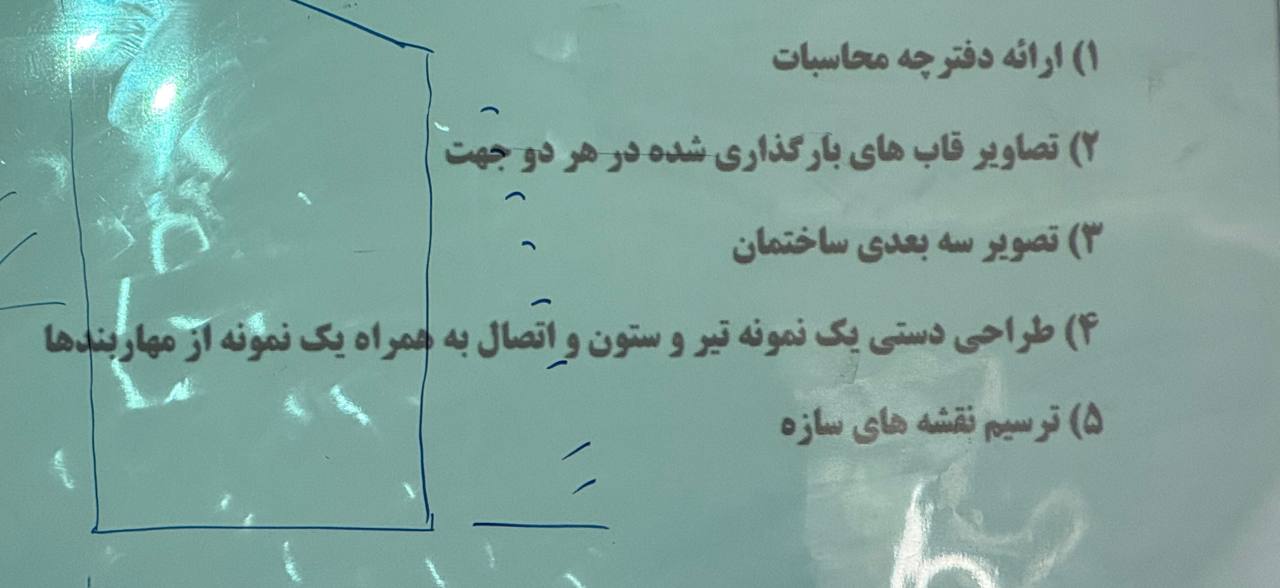 ۱) ارائه دفترچه محاسبات
۲) تصاویر قاب های بارگذاری شده در هر دو جهت
۳) تصویر سه بعدی ساختمان
۴) طراحی دستی یک نمونه تیر و ستون و اتصال به همراه یک نمونه از مهاربندها
۵) ترسیم نقشه های سازه